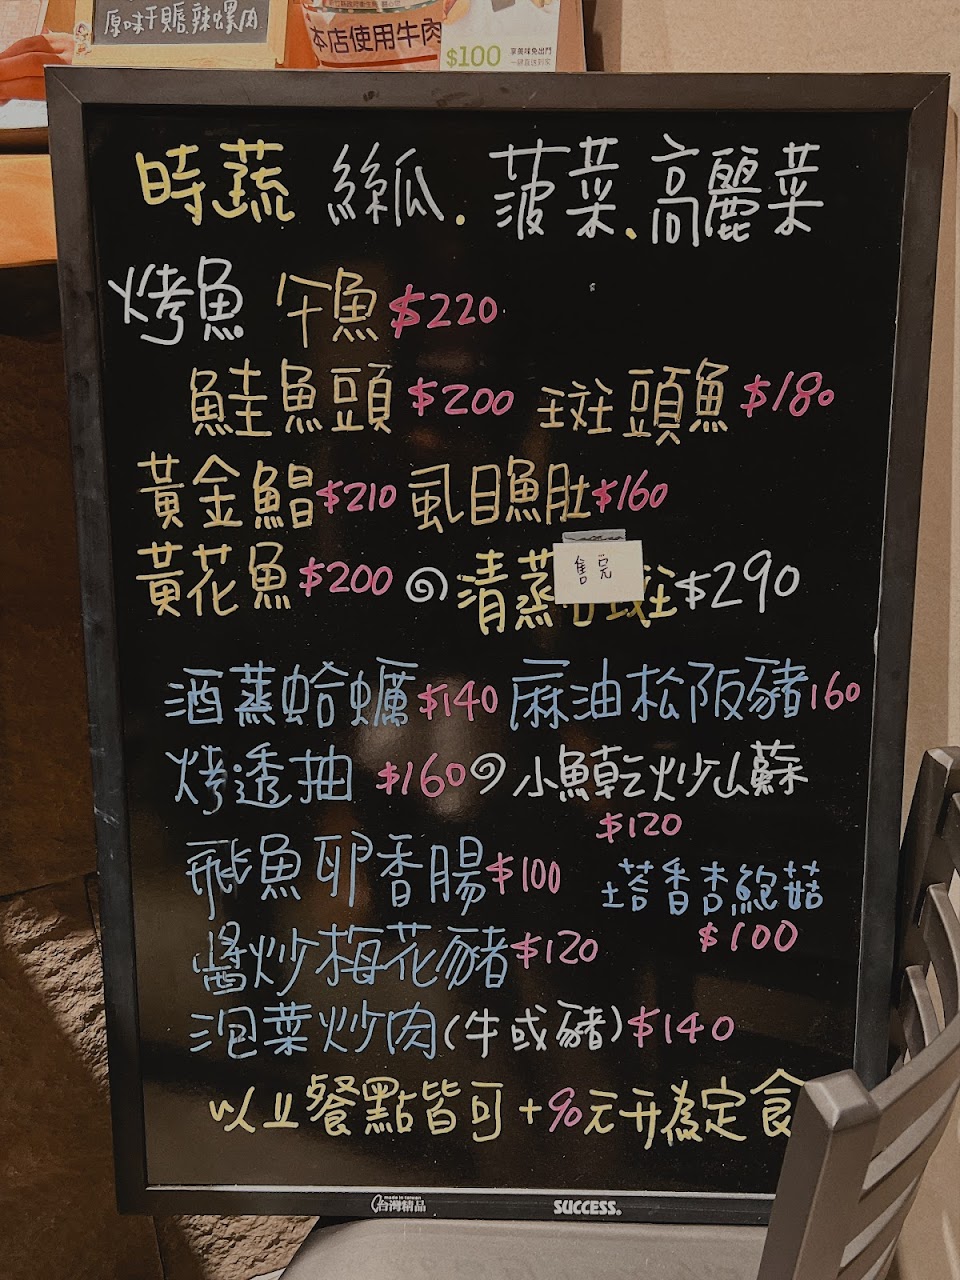 原味干貝唇.辣螺肉
本店使用牛肉
$100
享美味免出門
一鍵直送到家
時蔬 絲瓜.菠菜.高麗菜
烤魚 午魚$220
鮭魚頭$200 斑頭魚$180
黃金鯧$210 虱目魚肚$160
黃花魚$200 清蒸 斑$290
售完
酒蒸蛤蠣$140 麻油松阪豬160
烤透抽 $160 小魚乾炒山蘇
$120
飛魚耶香腸$100 塔香杏鮑菇
$100
醬炒梅花豬$120
泡菜炒肉(牛或豬)$140
以上餐點皆可+90元升為定食
made in taiwan
台灣精品
SUCCESS.